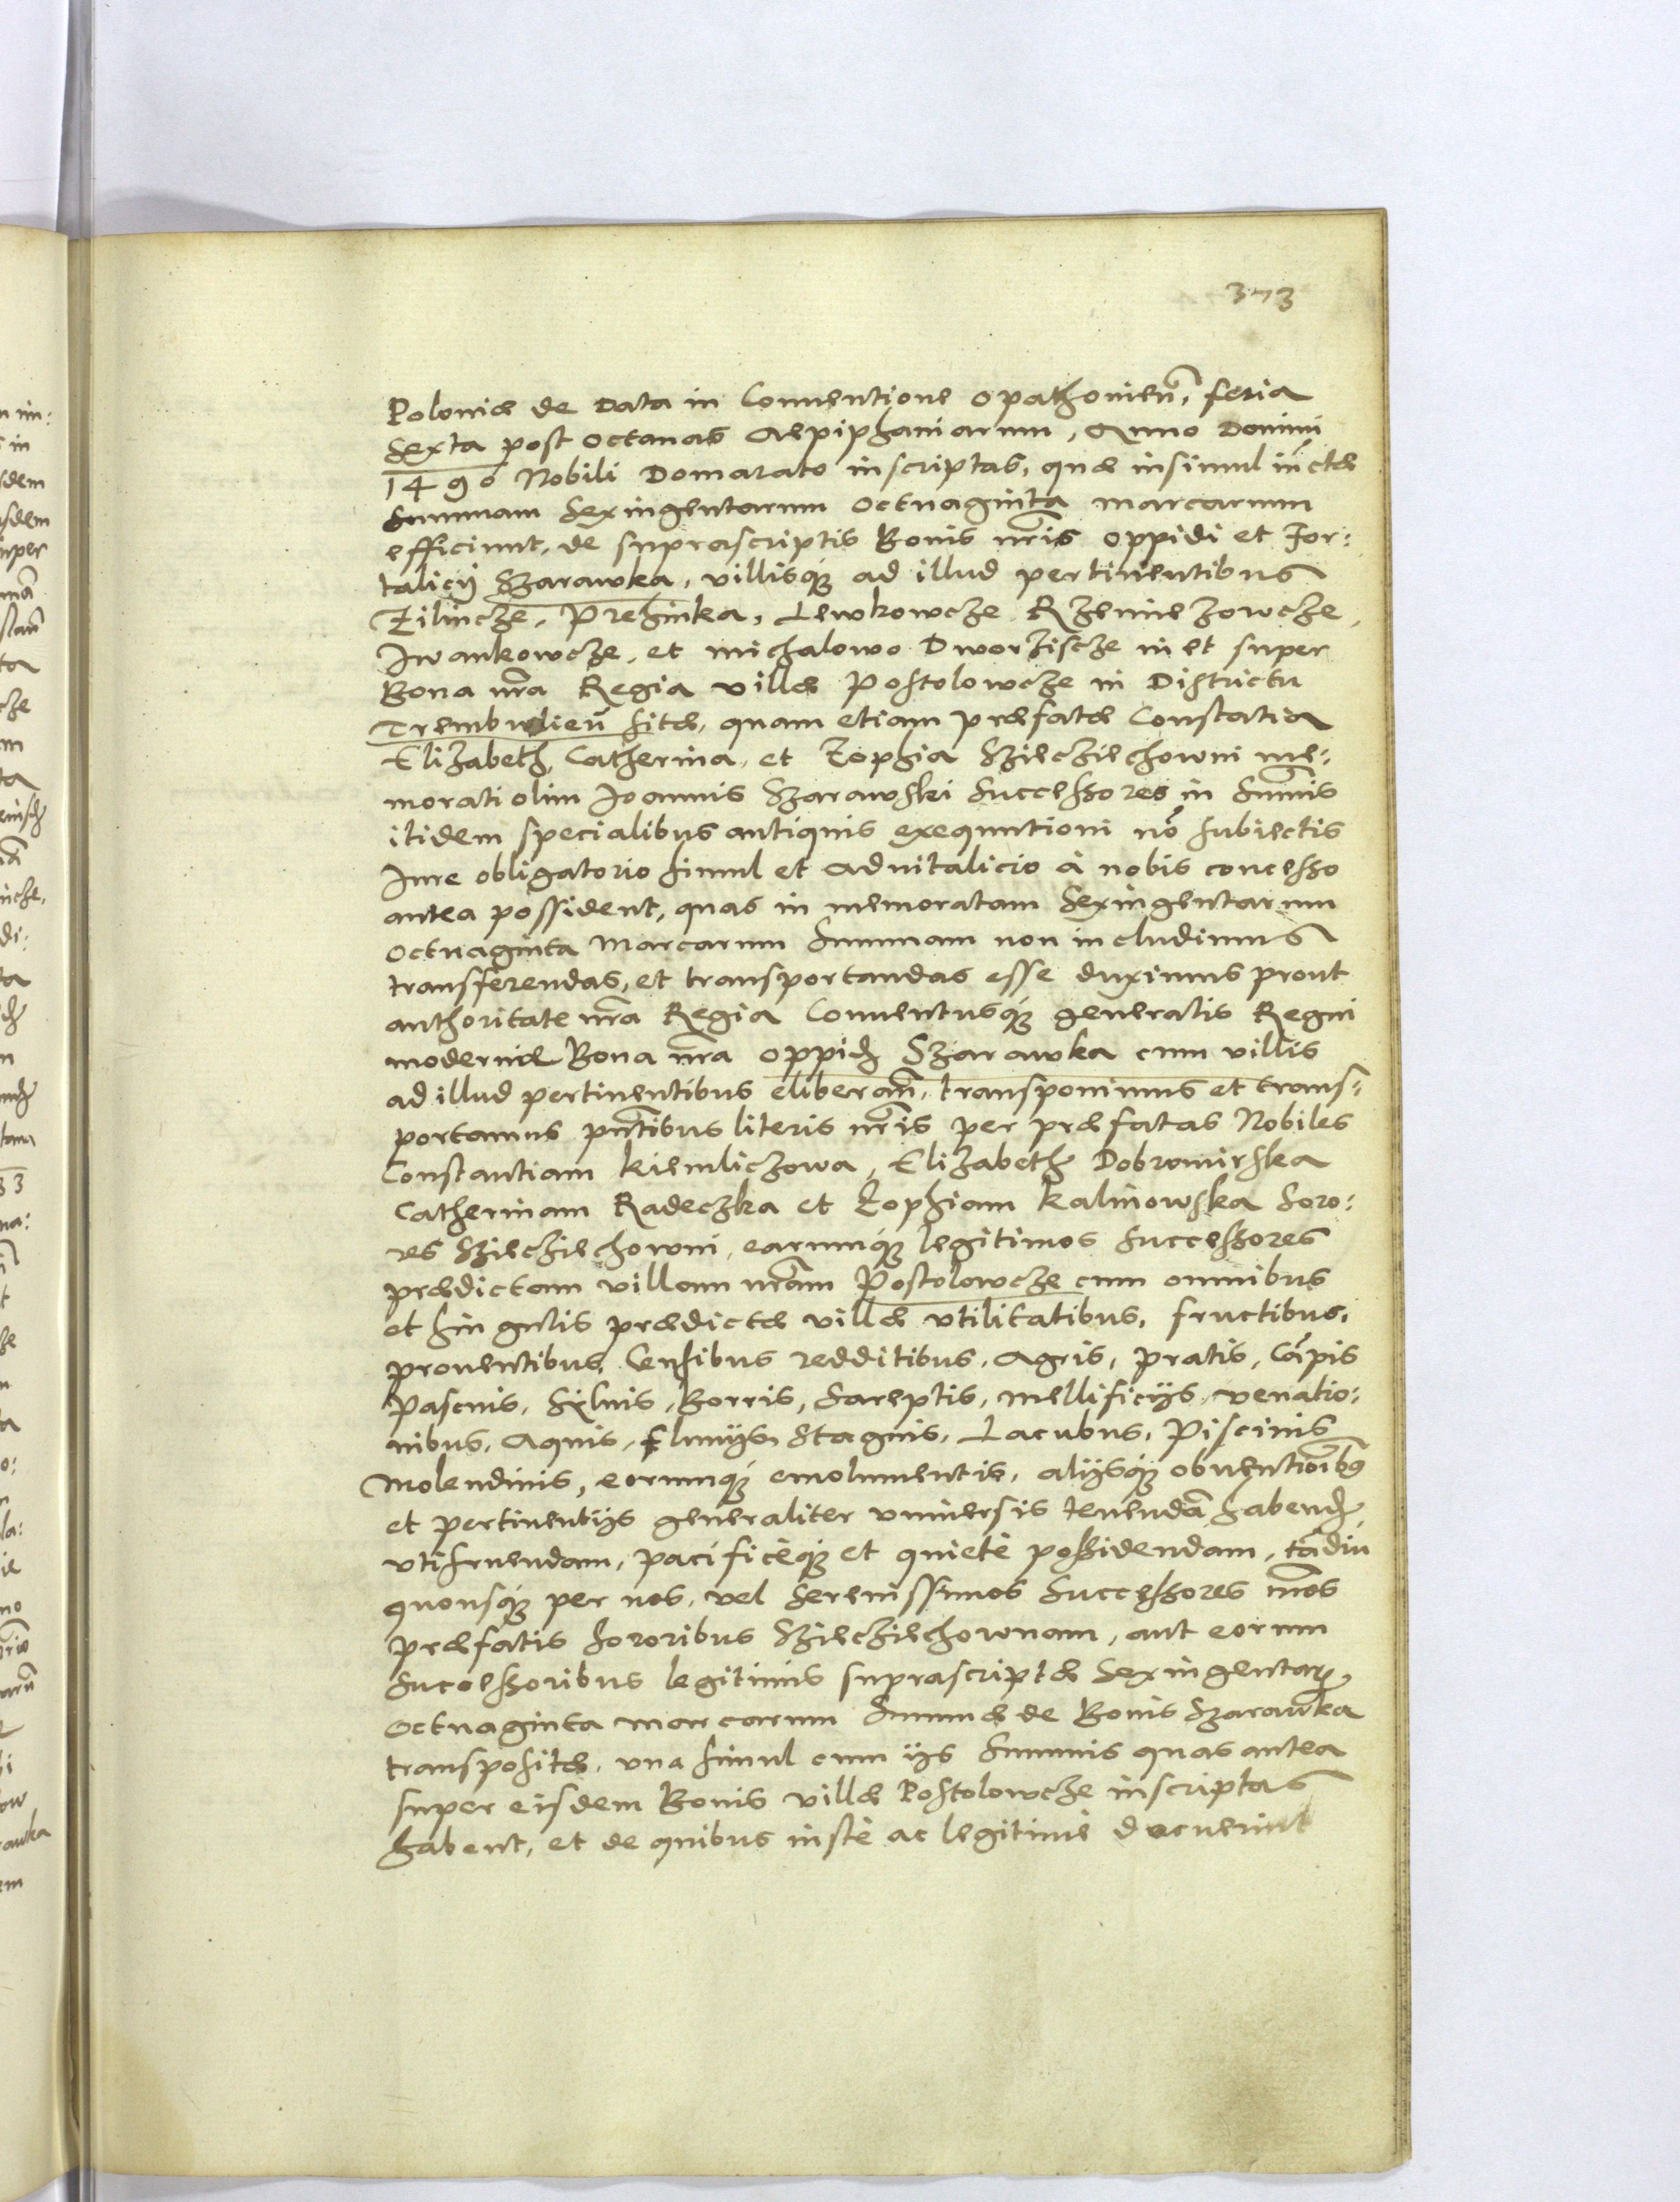 373
Poloniæ de Data in Conuentione opathonien̄, feria
Sexta post octauas Aepiphaniarum, Anno Domini
1490 Nobili Domarato inscriptas, quæ insimul iūctæ
Summam Sexingentarum octuaginta marcarum
efficiunt, de suprascriptis Bonis nr̄is oppidi et For:
talicÿ Szarawka, villisq̨ ad illud pertinentibus
Zilincze, Prezinka, Lewkowcze, Rzemiezowcze,
Iwankowcze, et michalowo Dworziscze in et super
Bona nr̄a Regia villæ Postolowcze in Districtu
Trembowlien̄ sitæ, quam etiam præfatæ Constatia
Elizabeth, Catherina, et Zophia Sziecziechowni me:
morati olim Ioannis Szarawski Successores in Sum̄is
itidem specialibus antiquis exequutioni nō subiectis
Iure obligatorio simul et aduitalicio à nobis concesso
antea possident, quas in memoratam Sexingentarum
octuaginta Marcarum Summam non includimus
transferendas, et transportandas esse duximus prout
authoritate nr̄a Regia Conuentusq̨ generalis Regni
moderni Bona nr̄a oppid Szarawka cum villis
ad illud pertinentibus eliberam̄, transponimus et trans:
portamus pn̄tibus literis nr̄is per præfatas Nobiles
Constantiam Kiemliczowa, Elizabeth Dobromirska
Catherinam Radeczka et Zophiam Kalinowska Soro:
res Sziecziechowni, earumq̨ legitimos Successores
prædictam villam nr̄am Postolowcze cum omnibus
et singulis prædictæ villæ vtilitatibus, fructibus,
prouentibus, Censibus redditibus, Agris, pratis, Cāpis
Pascuis, Syluis, Borris, Sareptis, mellificÿs, venatio:
nibus, Aquis, fluuÿs, Stagnis, Lacubus, Piscinis
Molendinis, eorumq̨ emolumentis, alÿsq̨ obuentioīb9
et pertinentÿs generaliter vniuersis tenendā habend,
vtifruendam, pacificèq̨ et quietè possidendam, tādiu
quousq̨ per nos, vel Serenissimos Successores nr̄os
præfatis Sororibus Sziecziechownam, aut eorum
Successoribus legitimis suprascriptæ Sexingentaꝝ
Octuaginta marcarum Summæ de Bonis Szarawka
transpositæ, vna simul cum ÿs Summis quas antea
super eisdem Bonis villæ Postolowcze inscriptas
habent, et de quibus iustè ac legitimè docuerint